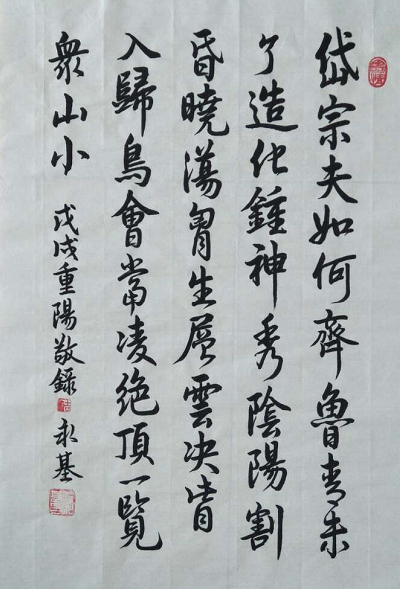 岱宗夫如何齊魯青未
了造化鍾神秀陰陽割
昏曉蕩胷生層雲決眥
入歸鳥會當凌絕頂一覽
衆山小
戊戌重陽敬錄 基